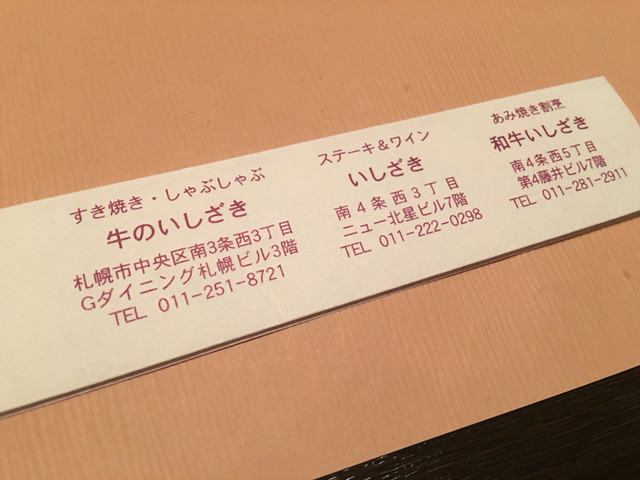 すき焼き・しゃぶしゃぶ
牛のいしざき
札幌市中央区南3条西3丁目
Gダイニング札幌ビル3階
TEL 011-251-8721
ステーキ&ワイン
いしざき
南4条西3丁目
ニュー北星ビル7階
TEL 011-222-0298
あみ焼き割烹
和牛いしざき
南4条西5丁目
第4藤井ビル7階
TEL 011-281-2911